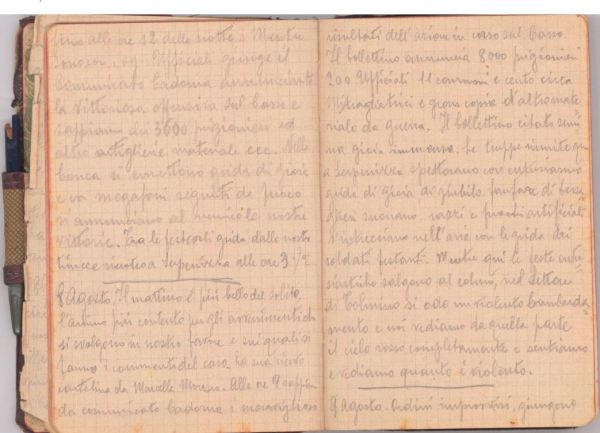 fino alle ore 12 della notte. Mentre
cogli Ufficiali giunge il
Comunicato Cadorna annunciante
la vittoriosa offensiva sul Carso e
sappiamo dei 3600 prigionieri ed
altro artiglierie materiale ecc. Nella
si emettono grida di gioia
e coi megafoni seguiti da fuoco
si annunciano al nemico le nostre
vittorie. Tra le grida dalle nostre
trincee a alle ore 3 1/2
8 Agosto. Il mattino è più bello del solito
l'animo più contento per gli avvenimenti che
si svolgono in nostro favore e sui quali si
fanno i commenti del caso. ricevo
cartolina da Marcelle. Alle ore 9 sappiamo
da comunicato Cadorna i meravigliosi
risultati dell'azione in corso sul Carso.
Il bollettino annuncia 8000 prigionieri
200 Ufficiali 11 cannoni e cento circa
Mitragliatrici e gran copia d'altro mate
riale da guerra. Il bollettino citato semi
na gioia immensa. Le truppe riunite qui
a con entusiasmo
grida di gioia di giubilo. fanfare di bersa
glieri suonano, razzi e fuochi artificiali
s'intrecciano nell'aria con le grida dei
soldati festanti. Mentre qui le feste entu
siastiche salgono al colmo, nel settore
di Tolmino si ode un violento bombarda
mento e noi vediamo da quella parte
il cielo rosso completamente e sentiamo
e vediamo quanto è violento.
9 Agosto. Ordini improvvisi, giungono